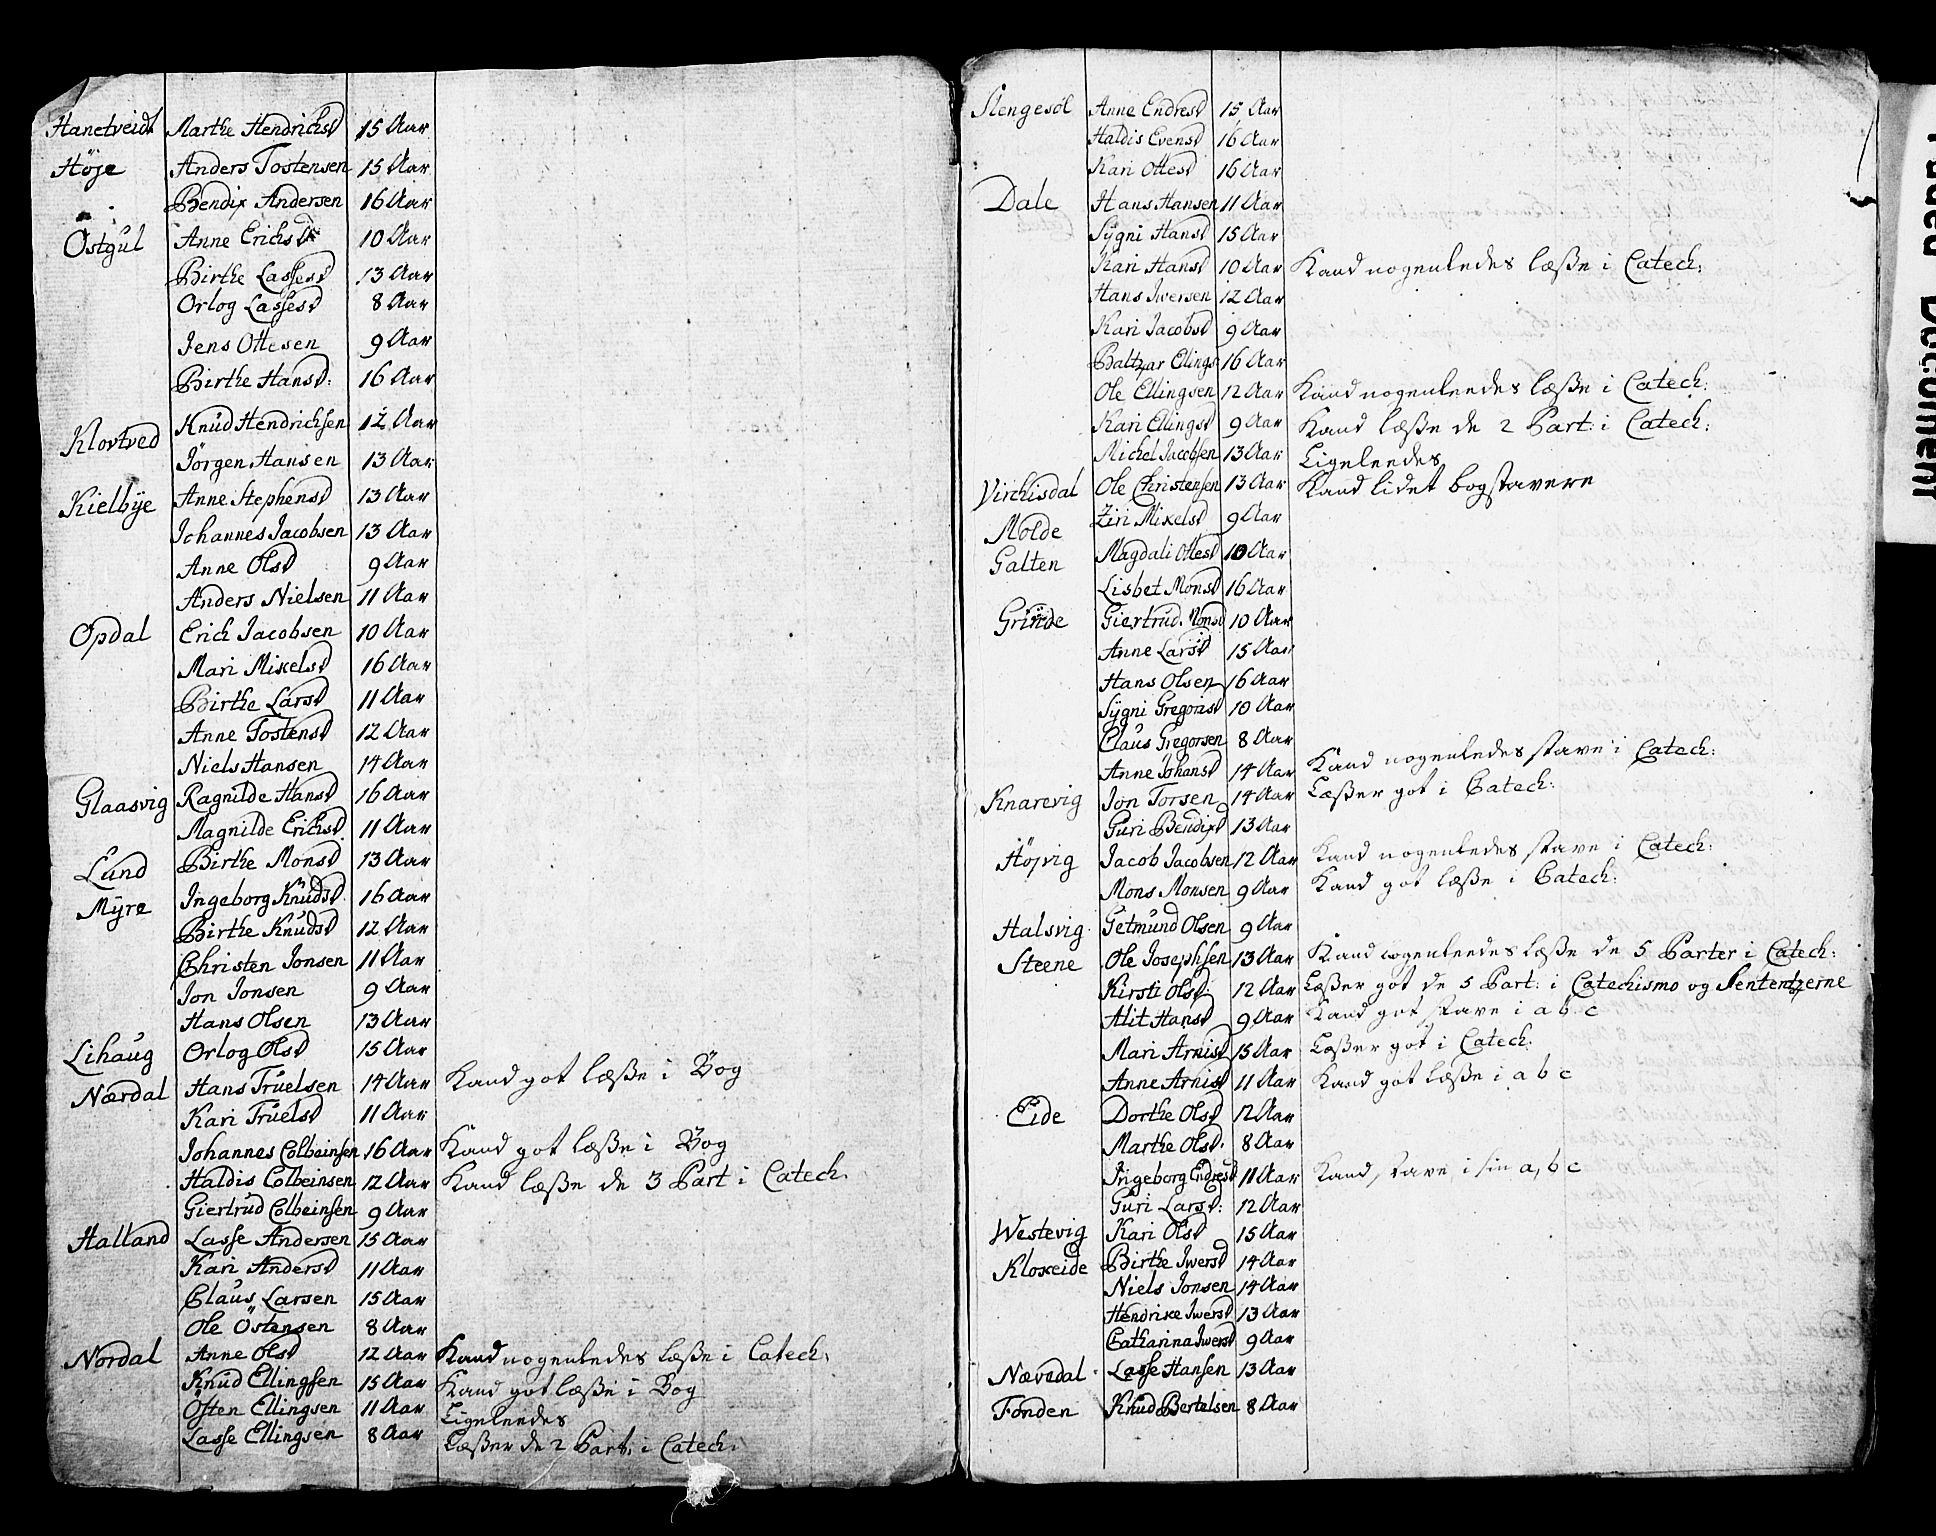 Hanetveidt Marthe Hendrichsd 15 Aar
Höje Anders Tostensen 15 Aar
Bendix Andersen 16 Aar
Östgul Anne Erichsd 10 Aar
Birthe Lassesd 13 Aar
Orlog Lassesd 8 Aar
Jens Ottesen 9 Aar
Birthe Hansd: 16 Aar
Klovtved Knud Hendrichsen 12 Aar
Jörgen Hansen 13 Aar
Kielbÿe Anne Stephensd 13 Aar
Johannes Jacobsen 13 Aar
Anne Olsd 9 Aar
Anders Nielsen 11 Aar
Opdal Erich Jacobsen 10 Aar
Mari Mikelsd 16 Aar
Birthe Larsd 11 Aar
Anne Tostensd 12 Aar
Niels Hansen 14 Aar
Glaasvig Ragnilde Hansd 16 Aar
Magnilde Erichsd 11 Aar
Lund Birthe Monsd 13 Aar
Mÿre Ingeborg Knudsd 16 Aar
Birthe Knudsd 12 Aar
Christen Jonsen 11 Aar
Jon Jonsen 9 Aar
Hans Olsen 13 Aar
Lihaug Orlog Olsd 15 Aar
Nærdal Hans Truelsen 14 Aar Kand got læße i Bog
Kari Truelsd 11 Aar
Johannes Colbeinsen 16 Aar Kand got læße i Bog
Haldis Colbeinsen 12 Aar Kand læße de 3 Part i Catech.
Giertrud Colbeinsen 9 Aar
Halland Lasse Andersen 15 Aar
Kari Andersd 11 Aar
Claus Larsen 15 Aar
Ole Östensen 8 Aar
Nordal Anne Olsd 12 Aar Kand nogenledes læße i Catech:
Knud Ellingsen 15 Aar Kand got læße i Bog
Östen Ellingsen 11 Aar Ligeleedes
Lasse Ellingsen 8 Aar Læßer de 2 Part: i Catech:
Slengesöl Anne Endresd 15 Aar
Haldis Evensd 16 Aar
Kari Ottesd 16 Aar
Dale Hans Hansen 11 Aar
Sÿgni Hansd 15 Aar
Kari Hansd 10 Aar Kand nogenledes læße i Catech:
Hans Iwersen 12 Aar
Kari Jacobsd 9 Aar
Baltzar Ellings 16 Aar
Ole Ellingsen 12 Aar Kand nogenleedes læße i Catech:
Kari Ellingsd 9 Aar Kand læße de 2 Part: i Catech:
Michel Jacobsen 13 Aar Ligeleedes
Virchisdal Ole Christensen 13 Aar Kand lidet bogstavere
Molde Ziri Mikelsd 9 Aar
Galten Magdali Ottesd 10 Aar
Lisbet Monsd 16 Aar
Grinde Giertrud Monsd 10 Aar
Anne Larsd 15 Aar
Hans Olsen 16 Aar
Sÿgni Gregorisd 10 Aar
Claus Gregorsen 8 Aar
Anne Johansd 14 Aar Kand nogenledes stave i Catech:
Knarevig Jon Torsen 14 Aar Læßer got i Catech:
Guri Bendixd 13 Aar
Höjvig Jacob Jacobsen 12 Aar Kand nogenledes stave i Catech:
Mons Monsen 9 Aar Kand got læße i Catech:
Halsvig Getmund Olsen 9 Aar
Steene Ole Josephsen 13 Aar Kand nogenleedes læße de 5 Parter i Catech:
Kirsti Olsd: 12 Aar Læßer got de 5 Part: i Catechismo og Sententzerne
Alit Hansd 9 Aar Kand got stave i a b c
Mari Arnisd 15 Aar Læßer got i Catech:
Anne Arnisd 11 Aar Kand got læße i a b c
Eide Dorthe Olsd 12 Aar
Marthe Olsd: 8 Aar
Ingeborg Endresd 11 Aar Kand stave i sin a, b c
Guri Larsd: 12 Aar
Westevig Kari Olsd 15 Aar
Kloxeide Birthe Iwersd 14 Aar
Niels Jonsen 14 Aar
Hendrike Iwersd 13 Aar
Catharina Iwersd 9 Aar
Nævedal Lasse Hansen 13 Aar
Fonden Knud Bertelsen 8 Aar
Faded Document